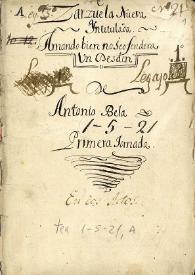 Zarzuela Nueva
Yntitulada
Amando bien no se ofende a
Un Desdin
Legajo
De
Antonio Bela
1-5-21
Primera Jornada
tea 1-5-21, A